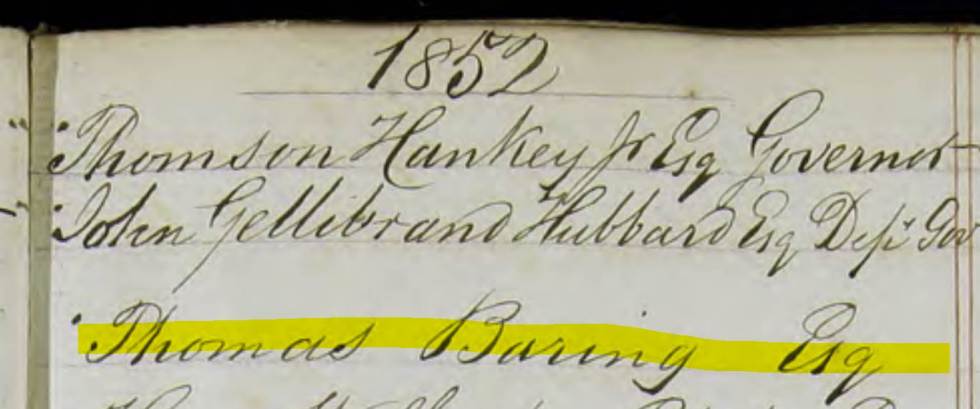 1852
Thomson Hankey Jr Esq Governor
John Gellibrand Hubbard Esq Depy Gov
Thomas Baring Esq